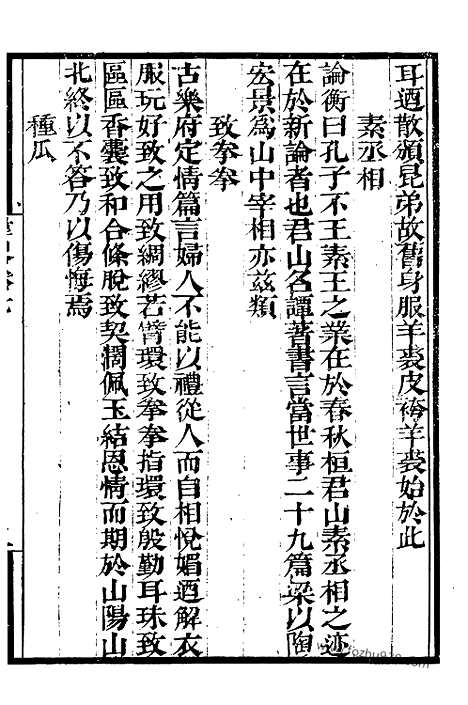 耳迺散頒昆弟故舊身服羊裘皮袴羊裘始於此
素丞相
論衡曰孔子不王素王之業在於春秋桓君山素丞相之迹
在於新論者也君山名譚著書言當世事二十九篇梁以陶
宏景爲山中宰相亦兹類
致拳拳
古樂府定情篇言婦人不能以禮從人而自相悅媚迺解衣
服玩好致之用致綢繆若臂環致拳拳指環致殷勤耳珠致
區區香囊致和合條脫致契闊佩玉結恩情而期於山陽山
北終以不答乃以傷悔焉
種瓜